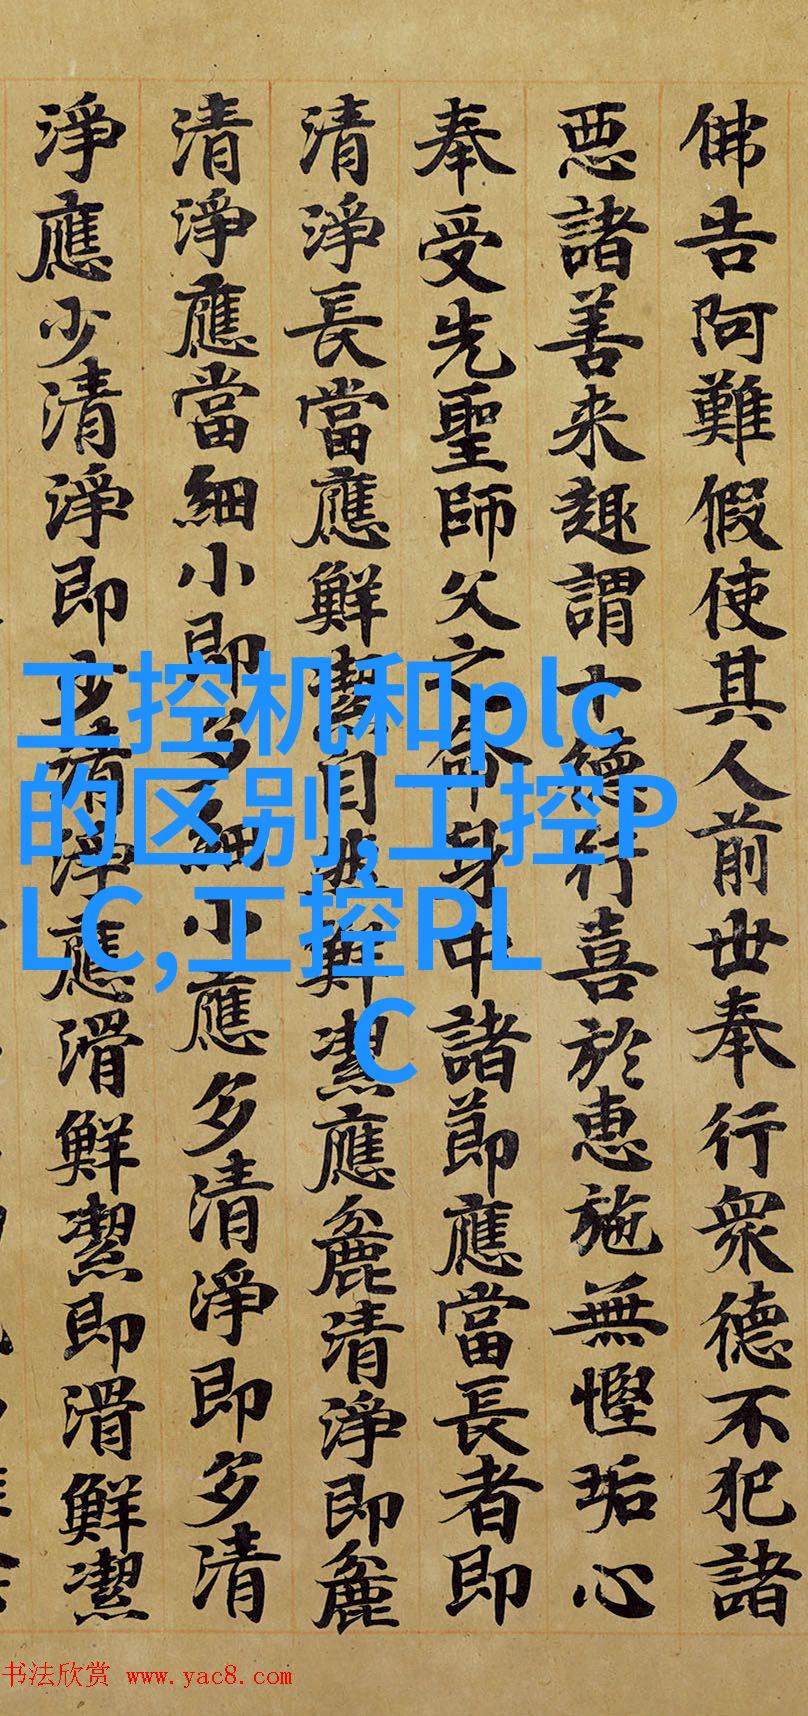 佛告阿難假使其人前世奉行眾德不犯諸
惡諸善来趣謂十德行喜於惠施無慳垢心
奉受先聖師父之命身中諸節應當長者即
清淨長當應鮮潔目鮮潔應麁清淨即麁
清淨應當細小即多細小應多清淨即多清
淨應少清淨即少清淨應滑鮮潔即滑鮮潔
工控机和plc
的区别,工控P
LC,工控PL
C
书法欣赏 www.yac8.com